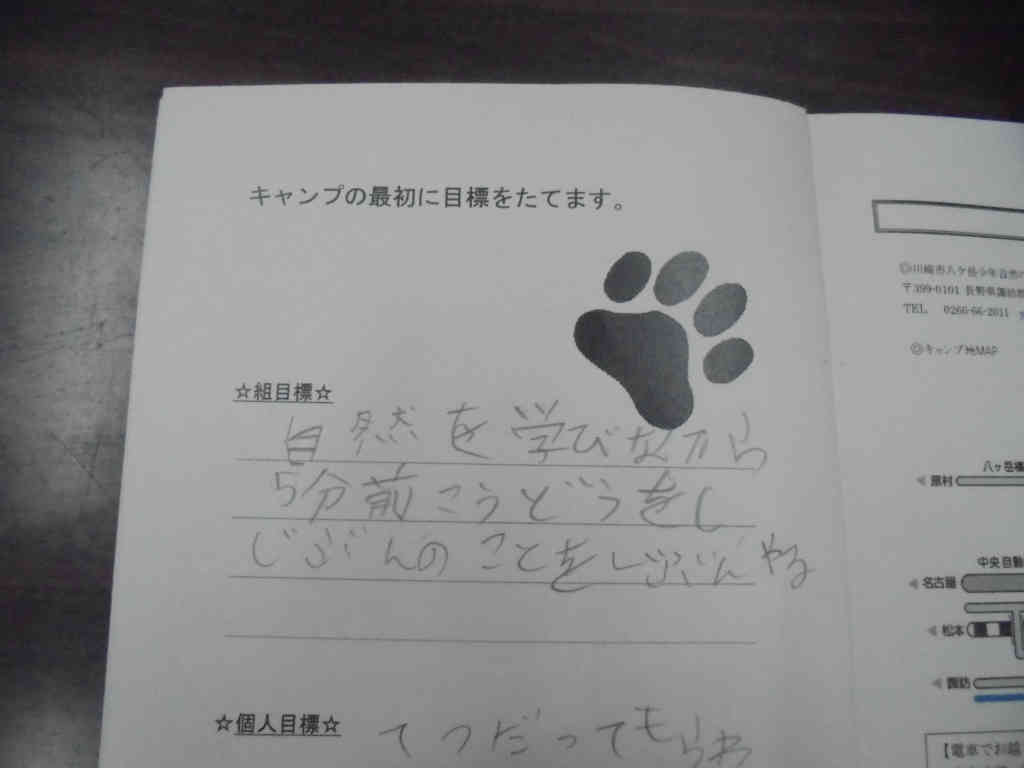 キャンプの最初に目標をたてます。
☆組目標☆
自然を学びながら
5分前こうどうをし
じぶんのことをじぶんやる
☆個人目標☆
てつだってもらわ
◎川崎市八ケ岳少年自然の
〒399-0101 長野県諏訪郡
TEL 0266-66-2011
◎キャンプ場MAP
八ヶ岳
原村
中央自動
名古屋
松本
諏訪
【電車でお越